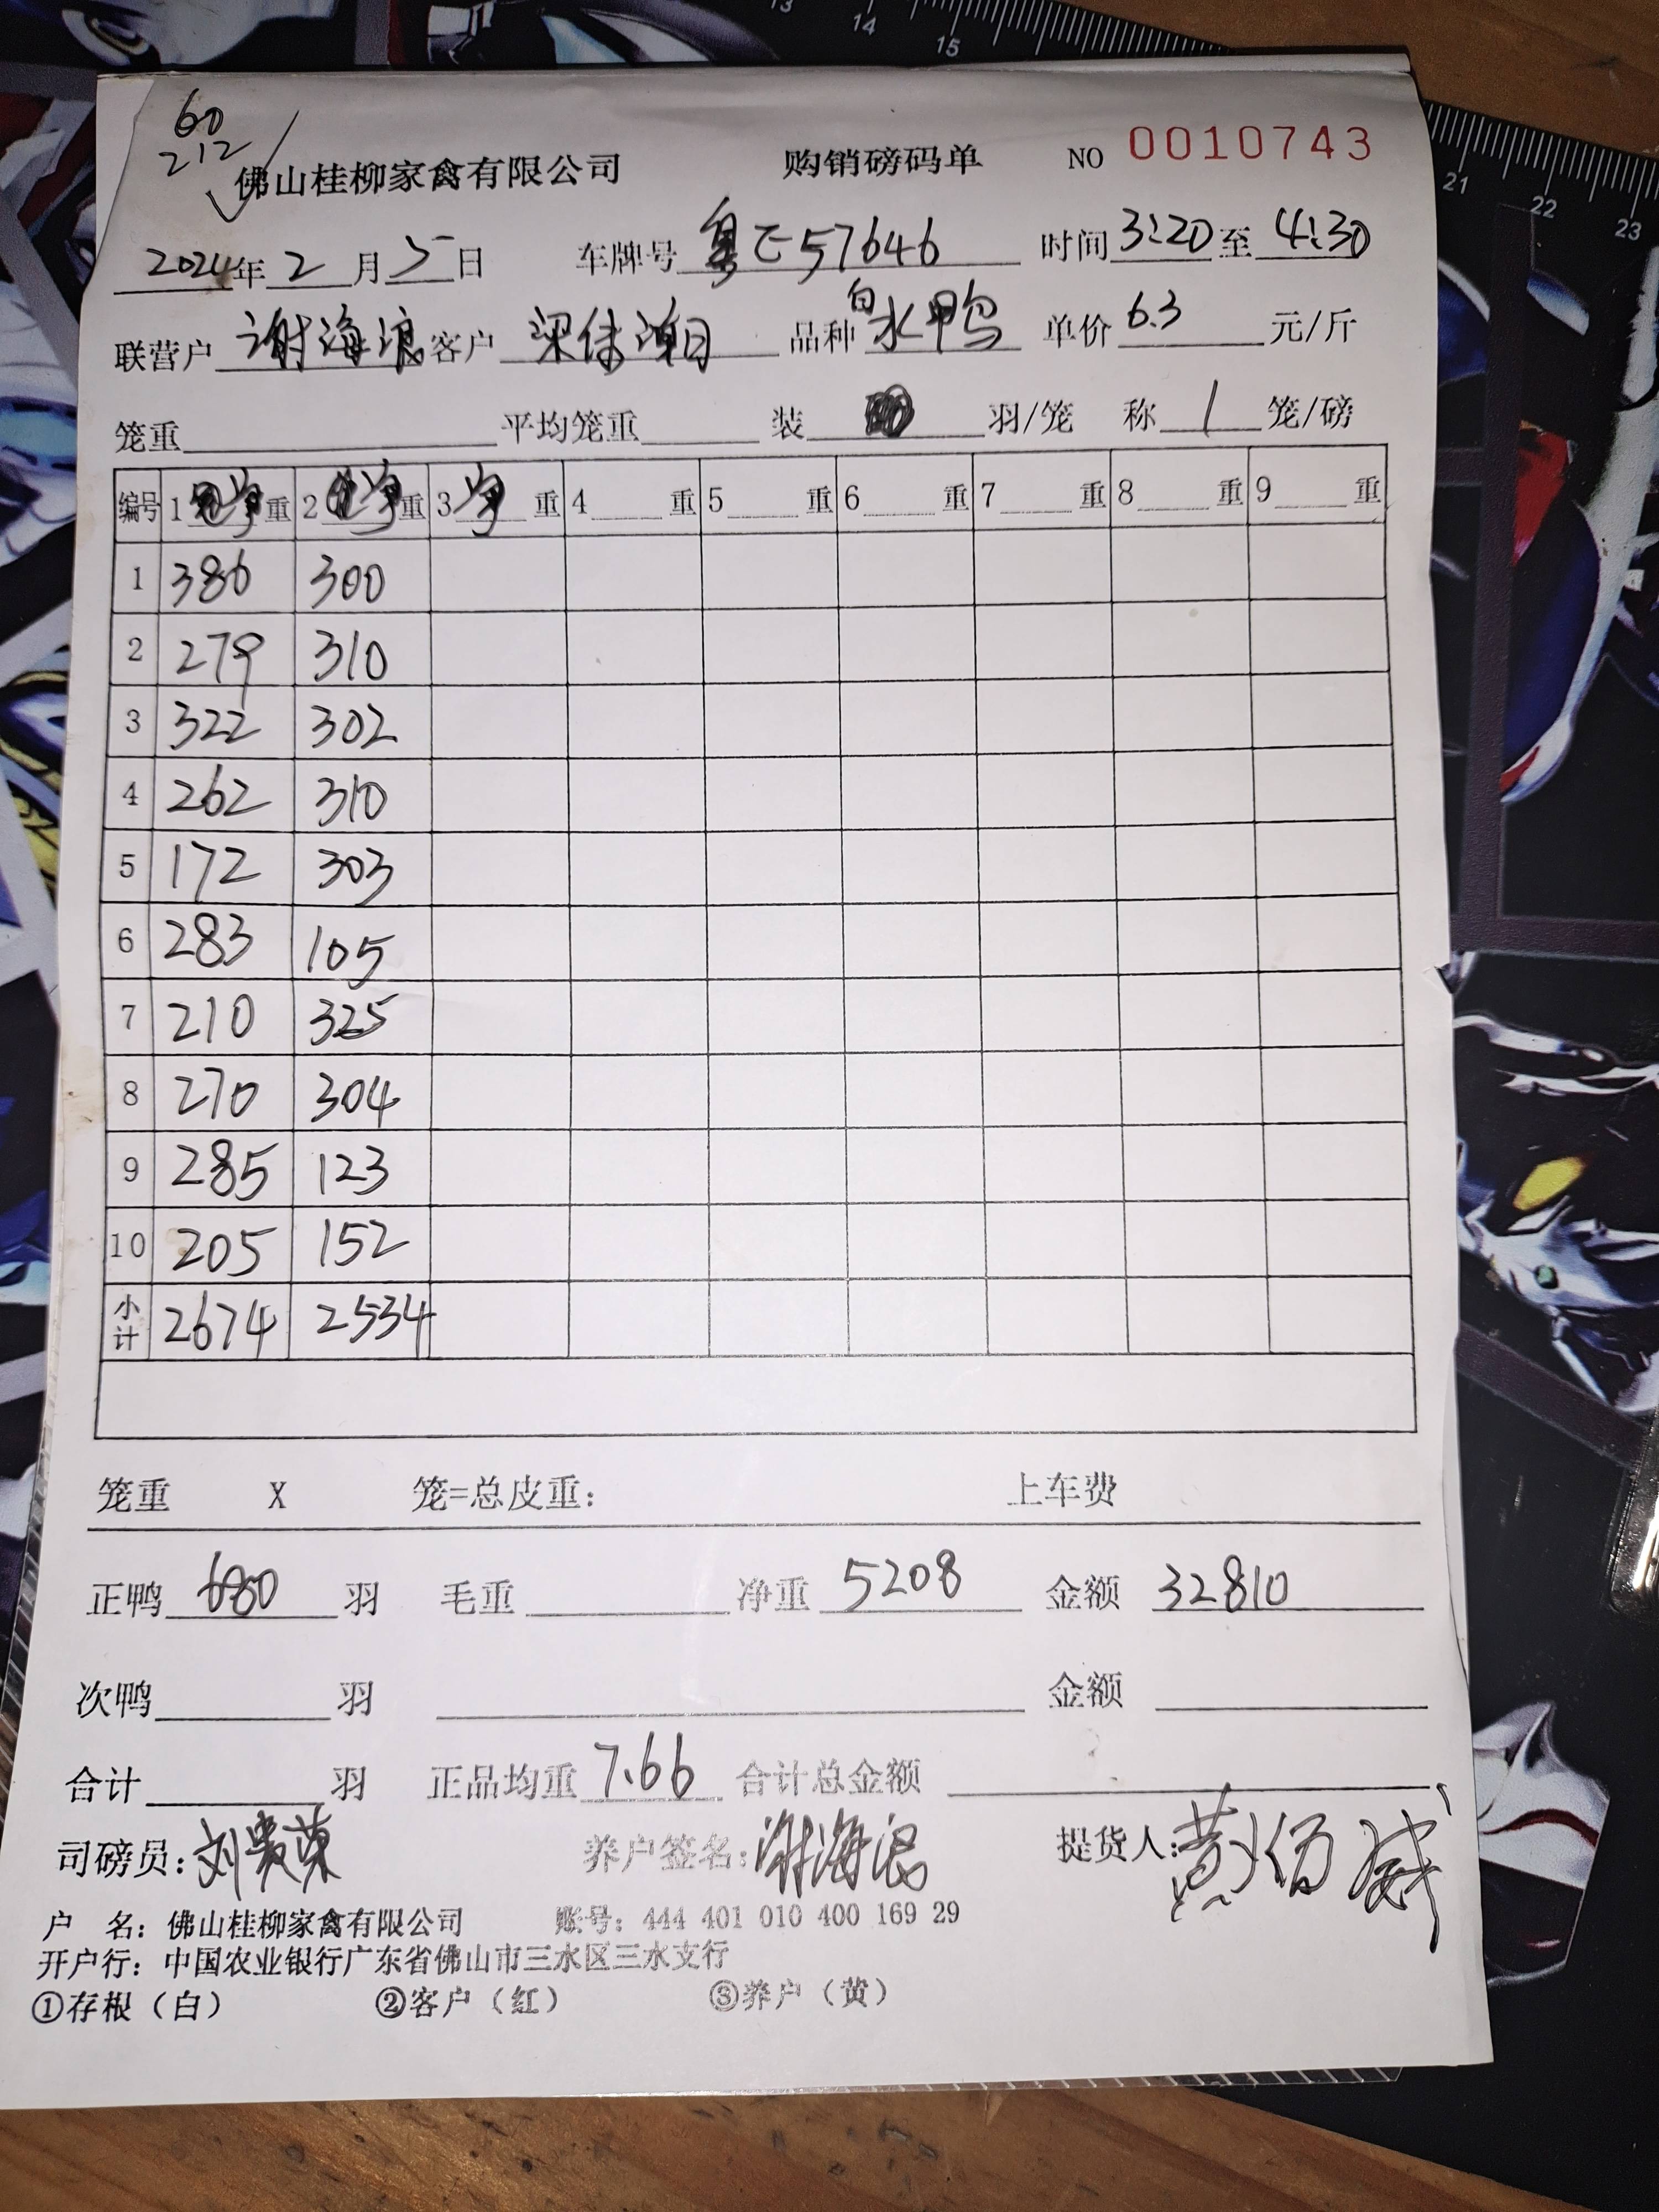 60
212
佛山桂柳家禽有限公司 购销磅码单 NO 0010743
2024年2月5日 车牌号 粤E57646 时间 3:20 至 4:30
联营户 谢海浪 客户 梁佳潮 品种 白水鸭 单价 6.3 元/斤
笼重 平均笼重 装 羽/笼 称 1 笼/磅
编号 1 净重 2 净重 3 净 重 4 重 5 重 6 重 7 重 8 重 9 重
1 386 300
2 279 310
3 322 302
4 262 310
5 172 303
6 283 105
7 210 325
8 270 304
9 285 123
10 205 152
小计 2674 2534
笼重 X 笼=总皮重: 上车费
正鸭 680 羽 毛重 净重 5208 金额 32810
次鸭 羽 金额
合计 羽 正品均重 7.66 合计总金额
司磅员:刘贵荣 养户签名:谢海浪 提货人:黄佰威
户 名: 佛山桂柳家禽有限公司 账号: 444 401 010 400 169 29
开户行: 中国农业银行广东省佛山市三水区三水支行
①存根（白） ②客户（红） ③养户（黄）
13 14 15
21 22 23